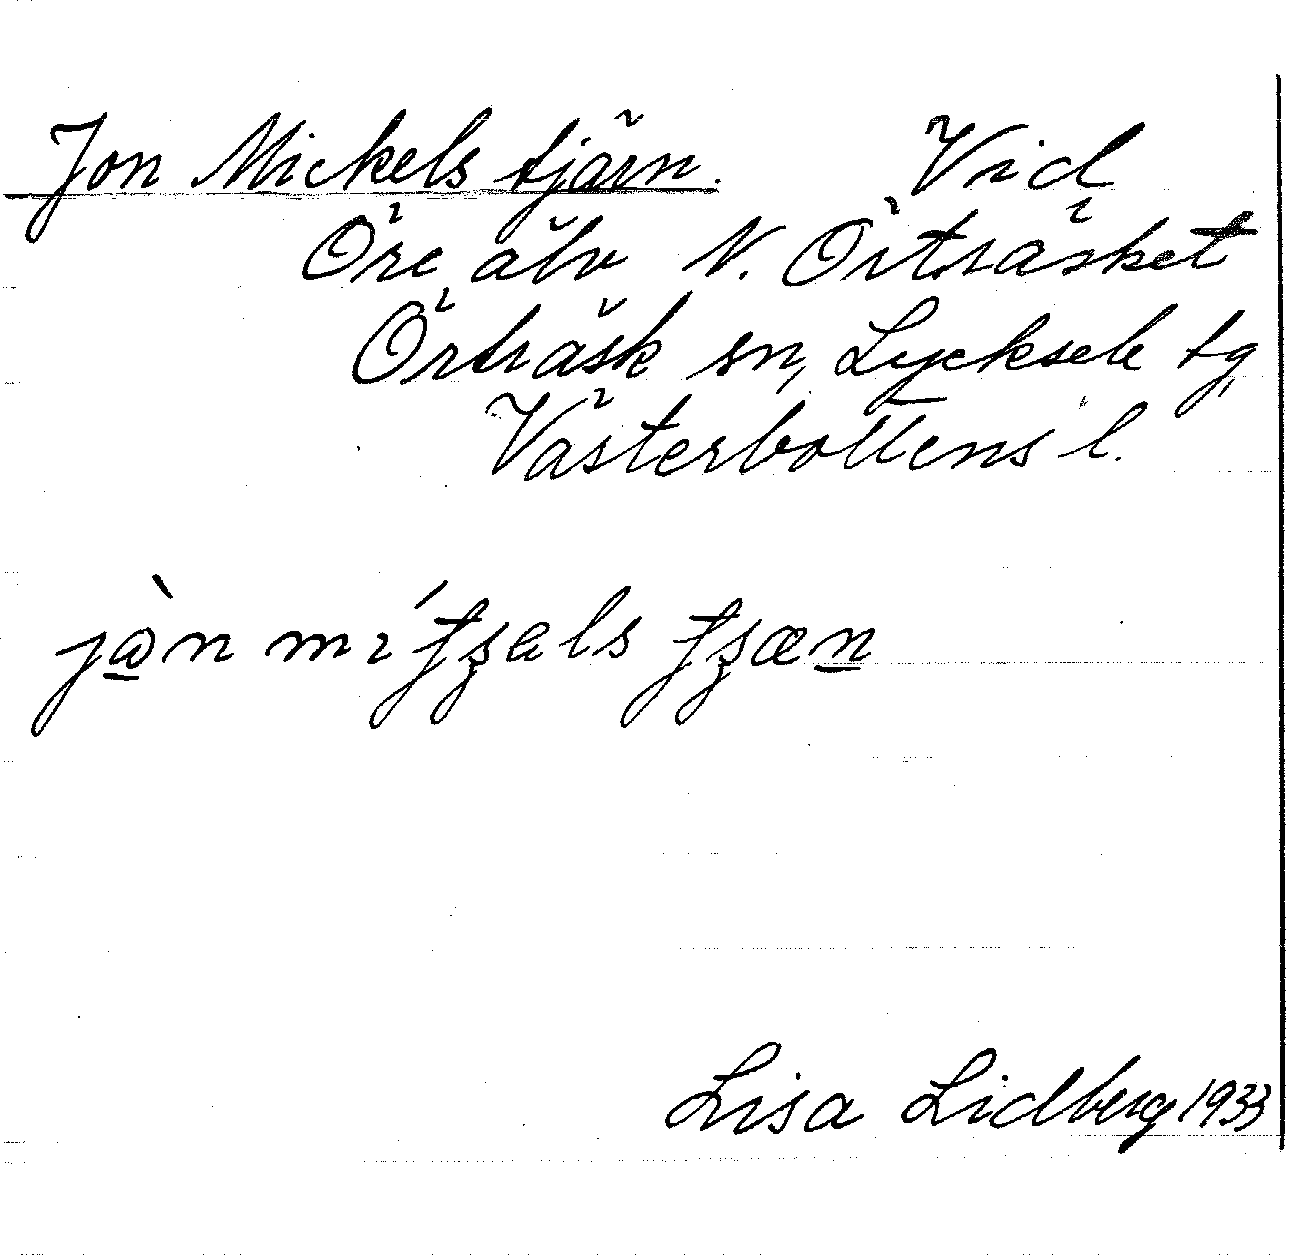 Jon Mickels tjärn. Vid
Öre älv N. Örträsket
Örträsk sn, Lycksele tg,
Västerbottens l.
Lisa Lidberg 1933